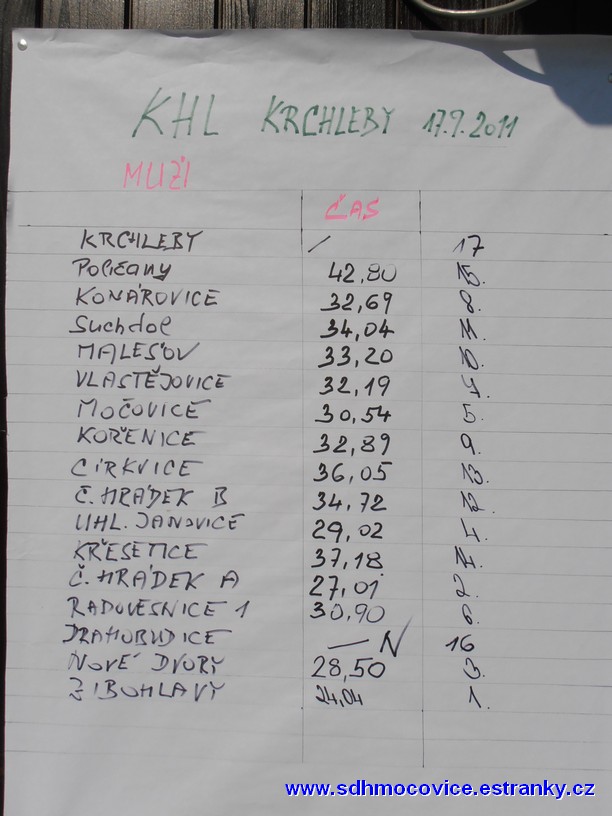 KHL KRCHLEBY 17.9.2011
MUŽI
ČAS
KRCHLEBY / 17
Poličany 42,80 15.
KONÁROVICE 32,69 8.
Suchdol 34,04 11.
MALEŠOV 33,20 10.
VLASTĚJOVICE 32,19 7.
MOČOVICE 30,54 5.
KOŘENICE 32,89 9.
CÍRKVICE 36,05 13.
Č. HRÁDEK B 34,72 12.
UHL. JANOVICE 29,02 4.
KŘESETICE 37,18 14.
Č. HRÁDEK A 27,01 2.
RADOVESNICE 1 30,90 6.
DRAHOBUDICE — N 16
NOVÉ DVORY 28,50 3.
ZIBOHLAVY 24,04 1.
www.sdhmocovice.estranky.cz